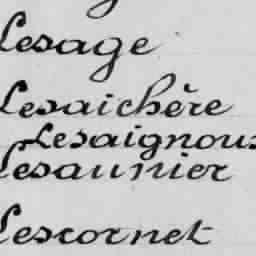 Lesage
Lesaichère
Lesaignoux
Lesaunier
Lescornet